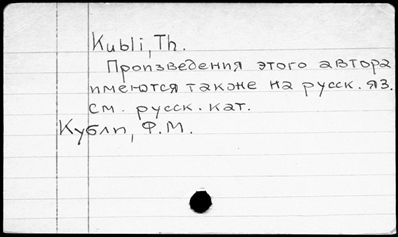 Kubli, Th.
Произведения этого автора
имеются также на русск. яз.
см. русск. кат.
Кубли, Ф.М.